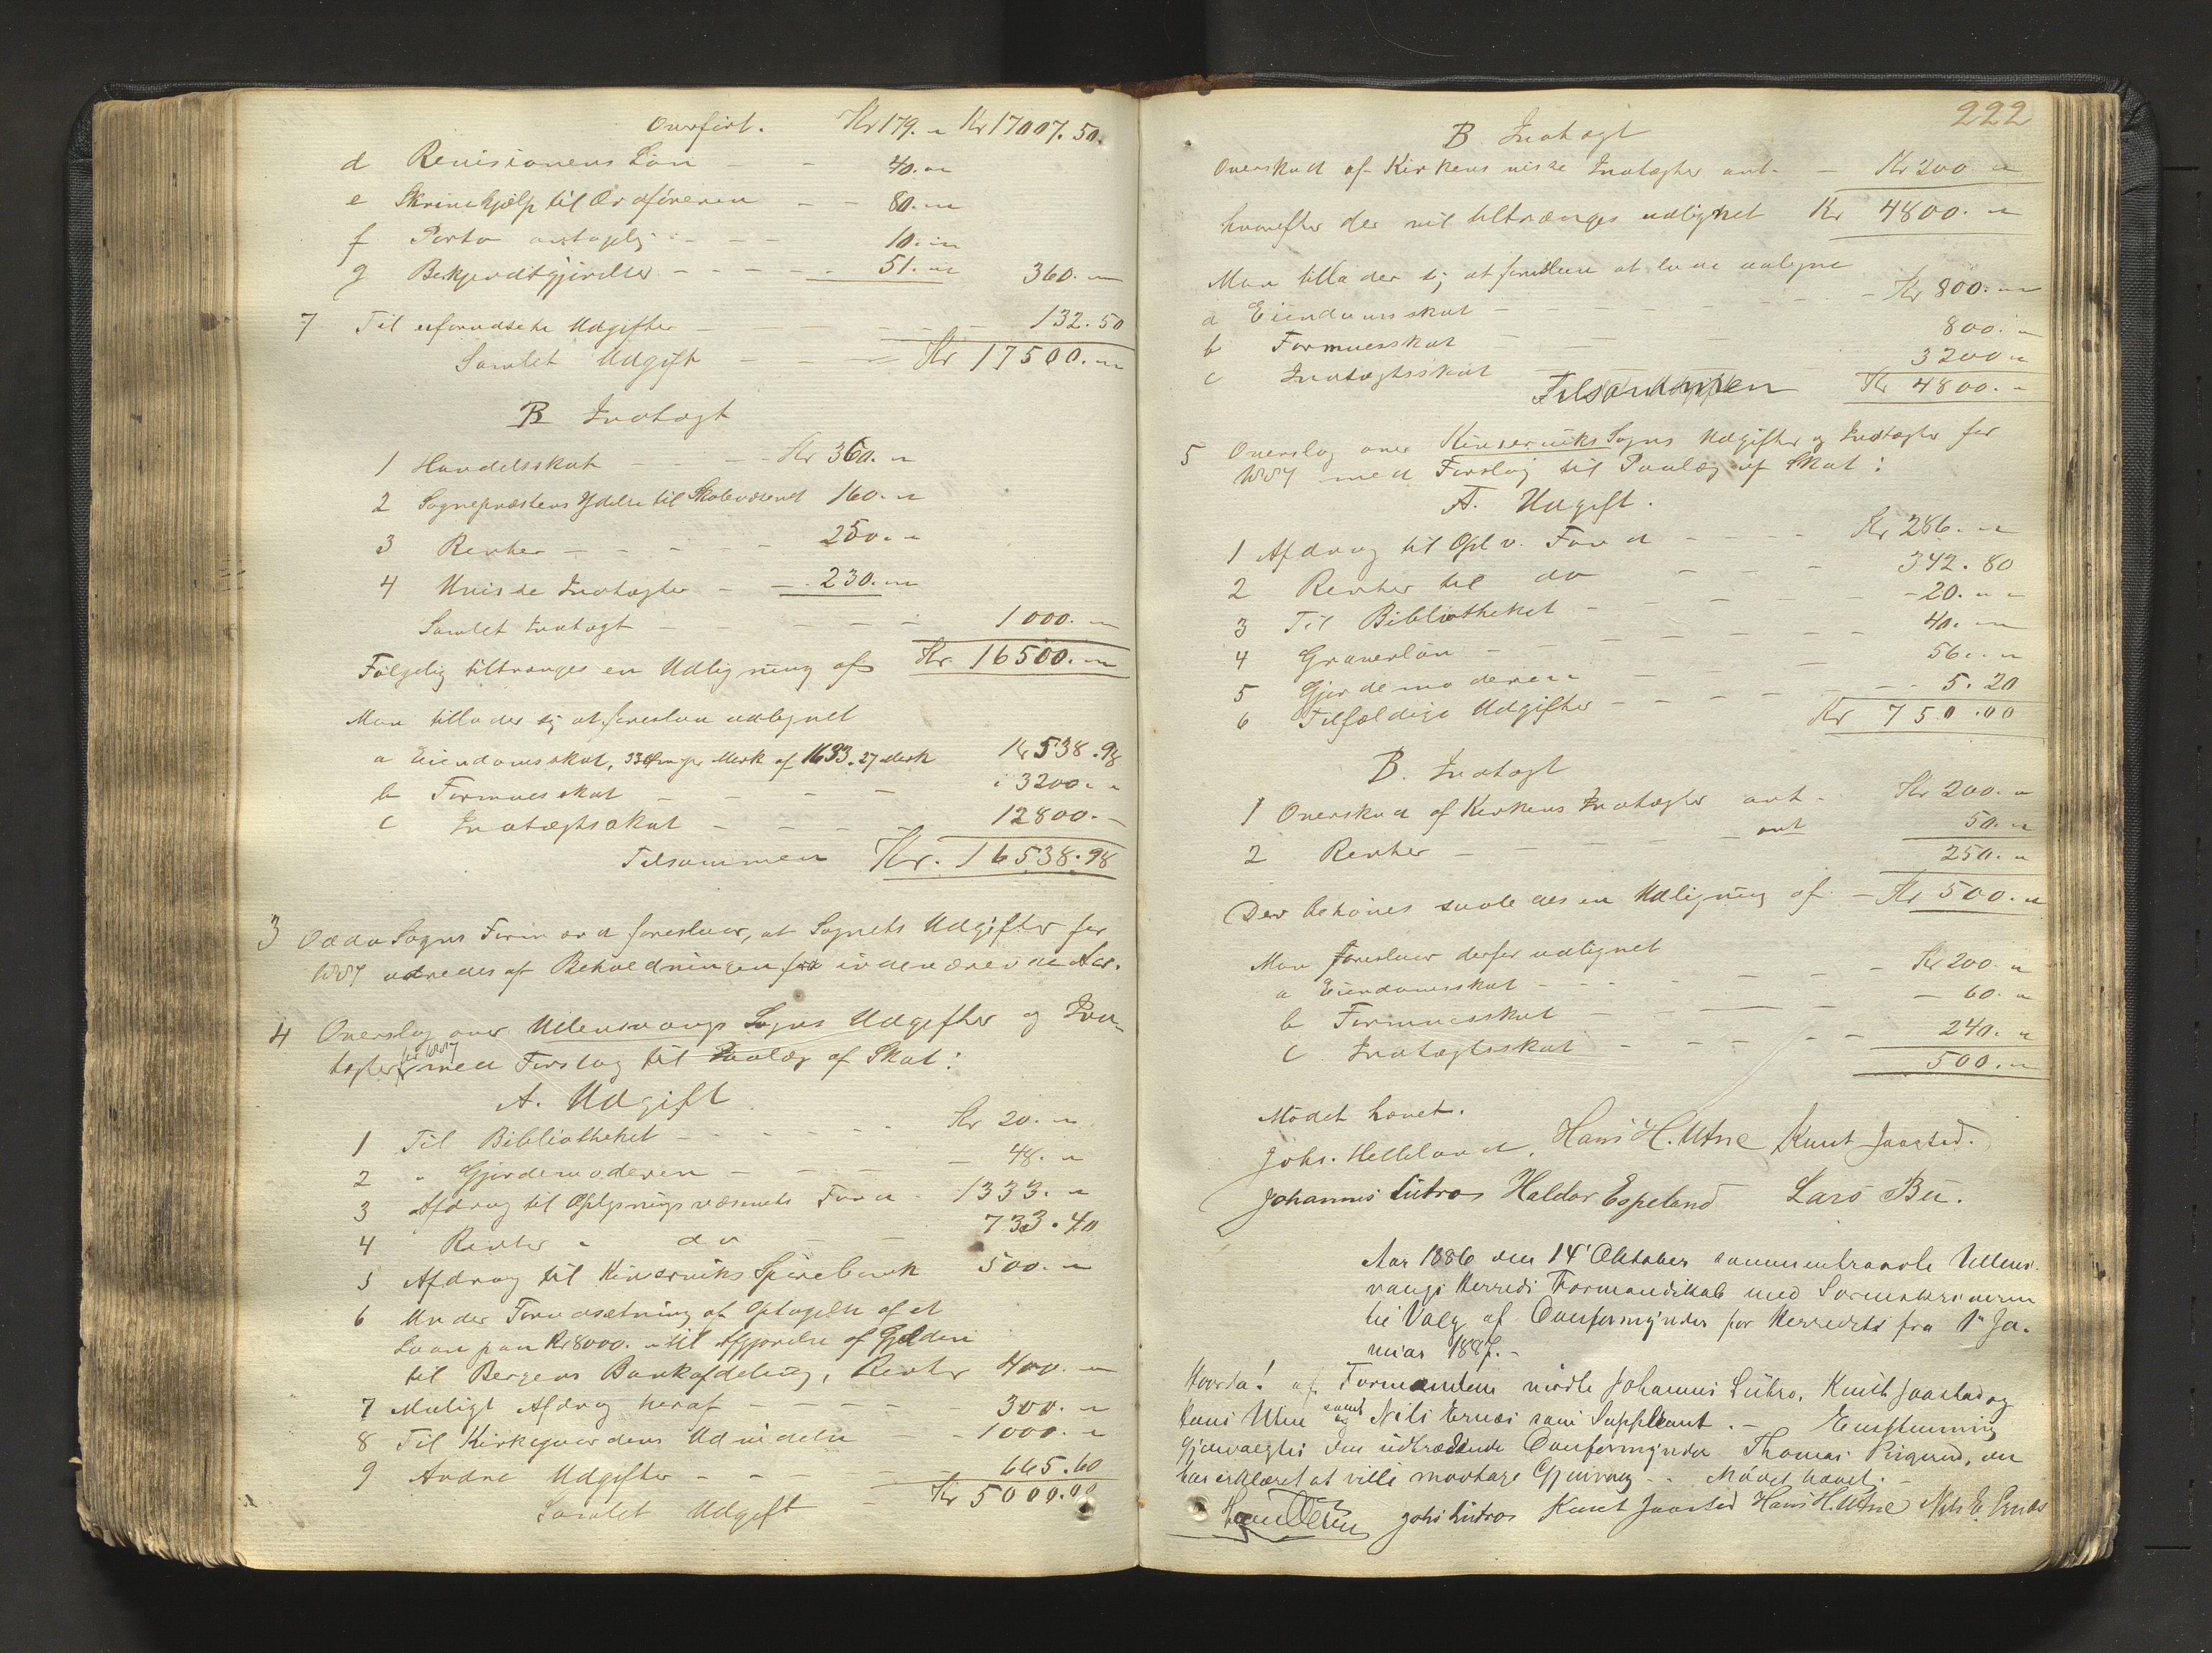 Overført. Kr 179. " Kr 17007.50.
d Revisionens Løn - - 40. "
e Skrivehjælp til Ordføreren - - 80. "
f Porto - - - 10. "
g Bekjendtgjørelser - - - - - 51. " 360. "
7 Til uforudsete Udgifter - - - - 132.50
Samlet Udgift - - - Kr 17500. "
B Indtægt
1 Handelsskat - - - Kr 360. "
2 Sognepræstens Ydelse til Skolevæsenet 160. "
3 Renter - - - - - 250. "
4 Uvisse Indtægter - - 230. "
Samlet Indtægt - - - - 1000. "
Følgelig tiltrænges en Udligning af Kr. 16500. "
Man tillader sig at foreslaa udlignet
a Eiendomsskat, 33 Øre per Mark af 1633.27 Mark Kr 538.98
b Formuesskat - - - - 3200. "
c Indtægtsskat - - - - 12800. -
Tilsammen Kr. 16538.98
3 Odda Sogns Formænd foreslaar, at Sognets Udgifter for
1887 udredes af Beholdningen fra indeværende Aar.
4 Overslag over Ullensvangs Sogns Udgifter og Ind-
tægter for 1887 med Forslag til Paalæg af Skat:
A. Udgift
1 Til Bibliotheket - - - - - Kr 20. "
2 " Gjordemoderen - - - - 48. "
3 Afdrag til Oplysningsvæsenets Fond - 1333. "
4 Renter " do - - 733.40
5 Afdrag til Kinserviks Sparebank 500. "
6 Under Forudsætning af Optagelse af et
Laan paa Kr 8000. " til Afgjørelse af Gjelden
til Bergens Bankafdeling, Renter 400. "
7 Muligt Afdrag heraf - - - - 300. "
8 Til Kirkegaardens Udvidelse - 1000. "
9 Andre Udgifter - - - - - 665.60
Samlet Udgift - Kr 5000.00
222
B Indtægt
Overskud af Kirkens visse Indtægter ant. - Kr 200. "
hvorefter der vil tiltrænges udlignet Kr 4800. "
Man tillader sig at foreslaa at lade udligne
a Eiendomsskat - - - - - - - Kr 800. "
b Formuesskat - - 800. "
c Indtægtsskat 3200 "
Tilsammen Kr 4800. "
5 Overslag over Kinserviks Sogns Udgifter og Indtægter for
1887 med Forslag til Paalæg af Skat:
A. Udgift.
1 Afdrag til Opl v. Fond - - - - Kr 286. "
2 Renter til do - - - 342.80
3 Til Bibliotheket - - - - - - 20. "
4 Graverløn - - - - - - 40. "
5 Gjordemoderen - - - 56. "
6 Tilfældige Udgifter - - - - - 5.20
Kr 750.00
B. Indtægt
1 Overskud af Kirkens Indtægter ant. Kr 200. "
2 Renter - - - - - ant 50. "
250. "
Der behøves saaledes en Udligning af - Kr 500. "
Man foreslaar derfor udlignet
a Eiendomsskat - - - - - - Kr 200. "
b Formuesskat - - - - 60. "
c Indtægtsskat - - - - - - 240. "
500. "
Mødet hævet.
Johs. Helleland. Hans H. Utne Knut Jaastad.
Johannes Lutros Haldor Espeland Lars Bu.
Aar 1886 den 14' Oktober sammentraadte Ullens-
vangs Herreds Formandskab med Sorenskriveren
til Valg af Overformynder for Herredets fra 1' Ja-
nuar 1887. -
Hvorda! af Formændene mødte Johannes Lutro, Knut Jaastad og
Hans Utne samt Nils Ernæs som Suppleant. - Eenstemmig
gjenvalgtes den udtrædende Overformynder Thomas, der
har erklæret at ville modtage Gjenvalg. - Mødet hævet. -
Johs Lutros Knut Jaastad Hans H. Utne Nils E. Ernæs